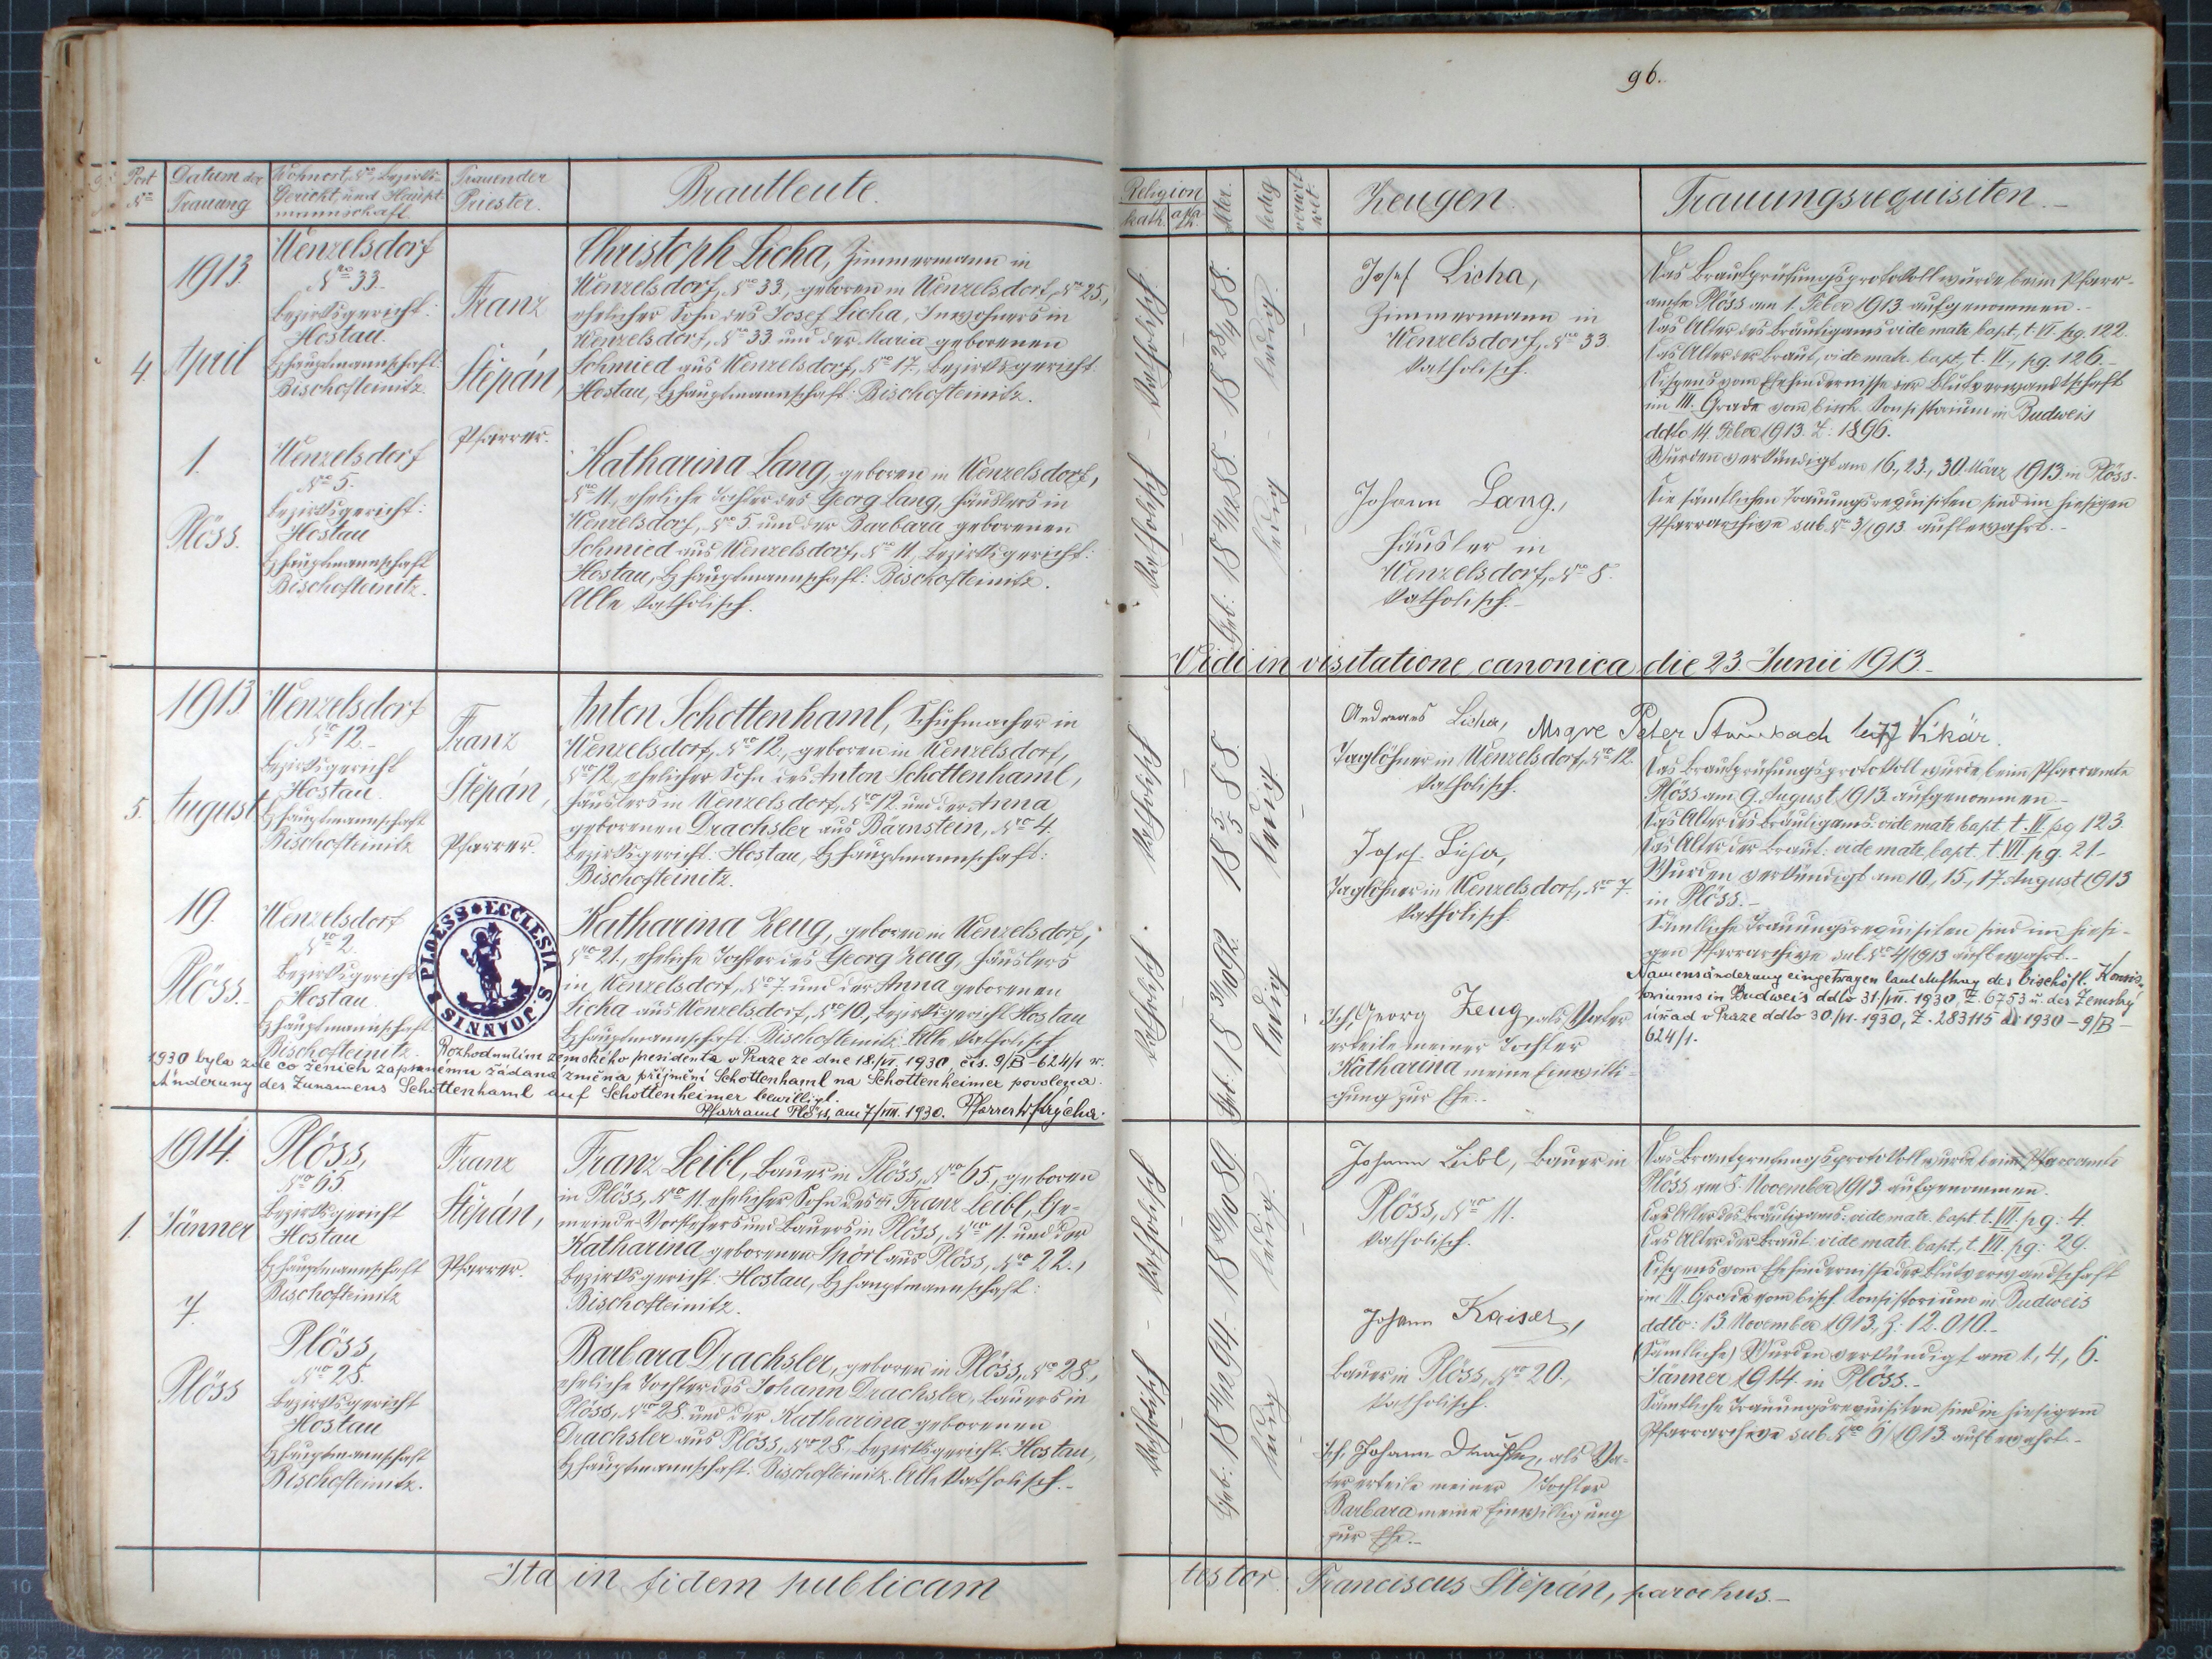 96.
Port Nro
Datum der Trauung
Wohnort, Nro, Bezirks-
Gericht, und Haupt-
mannschaft.
Trauender
Priester.
Brautleute.
Religion
kath.
Alter.
ledig
verwit-
wet.
Zeugen.
Trauungsrequisiten.
4.
1913.
April
1.
Plöss.
Wenzelsdorf
Nro 33.
Bezirksgericht:
Hostau.
Bhauptmannschaft:
Bischofteinitz.
Wenzelsdorf
Nro 5.
Bezirksgericht:
Hostau
Bhauptmannschaft
Bischofteinitz.
Franz
Štěpán,
Pfarrer.
Christoph Licha, Zimmermann in
Wenzelsdorf, Nro 33., geboren in Wenzelsdorf, Nro 25.,
ehelicher Sohn des Josef Licha, Inwohners in
Wenzelsdorf, Nro 33 und der Maria geborenen
Schmied aus Wenzelsdorf, Nro 17., Bezirksgericht:
Hostau, Bhauptmannschaft: Bischofteinitz.
Katharina Lang, geboren in Wenzelsdorf,
Nro 11., eheliche Tochter des Georg Lang, Häuslers in
Wenzelsdorf, Nro 5 und der Barbara geborenen
Schmied aus Wenzelsdorf, Nro 11, Bezirksgericht:
Hostau, Bhauptmannschaft: Bischofteinitz.
Alle katholisch.
Katholisch - Katholisch
Geb: 18 4/12 88. - 18 28/4 88.
ledig - ledig.
Josef Licha,
Zimmermann in
Wenzelsdorf, Nro 33.
katholisch.
Johann Lang,
Häusler in
Wenzelsdorf, Nro 8.
katholisch.-
Das Brautprüfungsprotokoll wurde beim Pfarr-
amte Plöss am 1. Feber 1913 aufgenommen.-
Das Alter des Bräutigams vide matr. bapt., t. VI. pg. 122.
Das Alter der Braut, vide matr. bapt., t. VI., pg. 126.-
Dispens vom Ehehindernisse der Blutverwandtschaft
im III. Grade vom bisch. Konsistorium in Budweis
ddto 14. Feber 1913. Z: 1896.
Wurden verkündigt am 16., 23., 30. März 1913 in Plöss.-
Die sämtlichen Trauungsrequisiten sind im hiesigen
Pfarrarchive sub. Nro 3/1913 aufbewahrt.-
Vidi in visitatione canonica die 23. Junii 1913.-
Peter Vikär.
5.
1913
August
19.
Plöss.
Wenzelsdorf
Nro 12.-
Bezirksgericht
Hostau.
Bhauptmannschaft
Bischofteinitz
Wenzelsdorf
Nro 2.
Bezirksgericht
Hostau.
Bhauptmannschaft
Bischofteinitz.
Franz
Štěpán,
Pfarrer.
ECCLESIA S. JOANNIS B. PLOESS
Anton Schottenhaml, Schuhmacher in
Wenzelsdorf, Nro 12., geboren in Wenzelsdorf,
Nro 12, ehelicher Sohn des Anton Schottenhaml,
Häuslers in Wenzelsdorf, Nro 12. und der Anna
geborenen Drachsler aus Bärnstein, Nro 4.
Bezirksgericht: Hostau, Bhauptmannschaft:
Bischofteinitz.
Katharina Zeug, geboren in Wenzelsdorf,
Nro 21., eheliche Tochter des Georg Zeug, Häuslers
in Wenzelsdorf, Nro 7 und der Anna geborenen
Licha aus Wenzelsdorf, Nro 10., Bezirksgericht Hostau
Bhauptmannschaft: Bischofteinitz. Alle katholisch.
Rozhodnutím zemského presidenta v Praze ze dne 18./VI. 1930, čís. 9/B-624/1 r.
1930 byla zde co ženich zapsanému žádaná změna příjmění Schottenhaml na Schottenheimer povolena.
Änderung des Zunamens Schottenhaml auf Schottenheimer bewilligt.
Pfarramt Plöss, am 7./VIII. 1930. Pfarrer
Katholisch Katholisch
Geb: 18 31/10 92. 18 5/5 88.
ledig ledig.
Andreas Licha,
Taglöhner in Wenzelsdorf, Nro 12.
katholisch.
Josef Licha,
Taglöhner in Wenzelsdorf, Nro 7.
katholisch.
Ich, Georg Zeug, als Vater
erteile meiner Tochter
Katharina meine Einwilli-
gung zur Ehe.-
Das Brautprüfungsprotokoll wurde beim Pfarramte
Plöss am 9. August 1913 aufgenommen.-
Das Alter des Bräutigams: vide matr. bapt. t. VI. pg 123.
Das Alter der Braut: vide matr. bapt. t. VII. pg. 21.-
Wurden verkündigt am 10., 15., 17. August 1913
in Plöss.-
Sämtliche Trauungsrequisiten sind im hiesi-
gen Pfarrarchive sub. Nro 4/1913 aufbewahrt.-
Namensänderung eingetragen laut Auftrag des bischöfl. Konsis-
toriums in Budweis ddto 31./VII. 1930, Z. 6753 u. des Zemský
úřad v Praze ddto 30./VI. 1930, Z. 283115 ai 1930 - 9/B -
624/1.
1.
1914.
Jänner
7.
Plöss
Plöss,
Nro 65
Bezirksgericht
Hostau
Bhauptmannschaft
Bischofteinitz
Plöss,
Nro 28.
Bezirksgericht
Hostau
Bhauptmannschaft
Bischofteinitz.
Franz
Štěpán,
Pfarrer.
Franz Leibl, Bauer in Plöss, Nro 65., geboren
in Plöss, Nro 11. ehelicher Sohn des Franz Leibl, Ge-
meinde-Vorstehers und Bauers in Plöss, Nro 11. und der
Katharina geborenen Spörl aus Plöss, Nro 22.,
Bezirksgericht: Hostau, Bhauptmannschaft:
Bischofteinitz.
Barbara Drachsler, geboren in Plöss, Nro 28.,
eheliche Tochter des Johann Drachsler, Bauers in
Plöss, Nro 28. und der Katharina geborenen
Drachsler aus Plöss, Nro 28. Bezirksgericht: Hostau,
Bhauptmannschaft: Bischofteinitz. Alle katholisch.-
Katholisch - Katholisch
Geb: 18 4/12 94.
ledig ledig.
Johann Leibl, Bauer in
Plöss, Nro 11.
katholisch.
Johann Kaiser,
Bauer in Plöss, Nro 20.,
katholisch.
Ich, Johann Drachsler, als Va-
ter erteile meiner Tochter
Barbara meine Einwilligung
zur Ehe.-
Das Brautprüfungsprotokoll wurde beim Pfarramte
Plöss am 8. November 1913 aufgenommen.
Das Alter des Bräutigams: vide matr. bapt. t. VII. pg: 4.
Das Alter der Braut: vide matr. bapt., t. VII. pg: 29.
Dispens vom Ehehindernisse der Blutverwandtschaft
im II. Grade vom bisch. Konsistorium in Budweis
ddto: 13. November 1913, Z: 12.010.-
(Sämtliche) Wurden verkündigt am 1., 4., 6.
Jänner 1914 in Plöss.-
Sämtliche Trauungsrequisiten sind in hiesigem
Pfarrarchive sub. Nro 6/1913 aufbewahrt.-
Ita in fidem publicam testor: Franciscus Štěpán, parochus.-